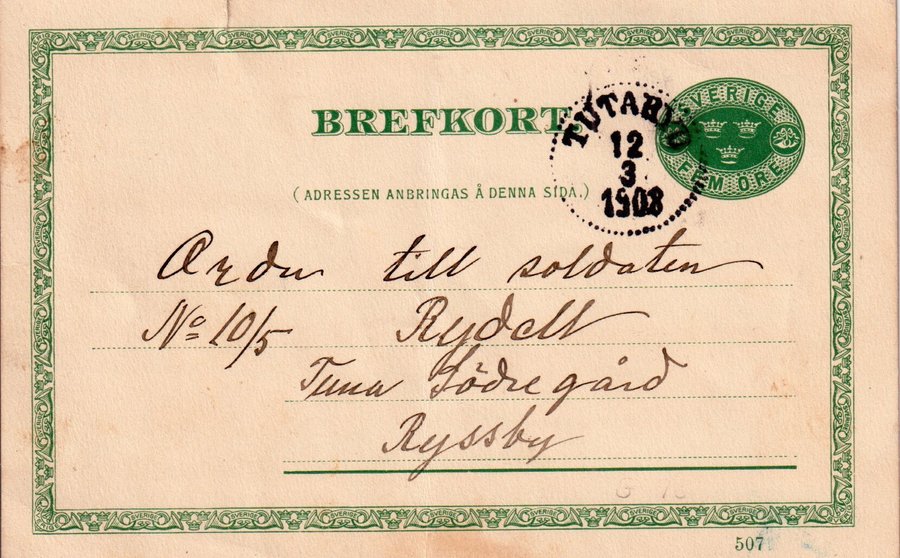 BREFKORT.
SVERIGE
FEM ÖRE
TUTARYD
12
3
1908
(ADRESSEN ANBRINGAS Å DENNA SIDA.)
Order till soldaten
No 10/5 Rydell
Tuna Södregård
Ryssby
507